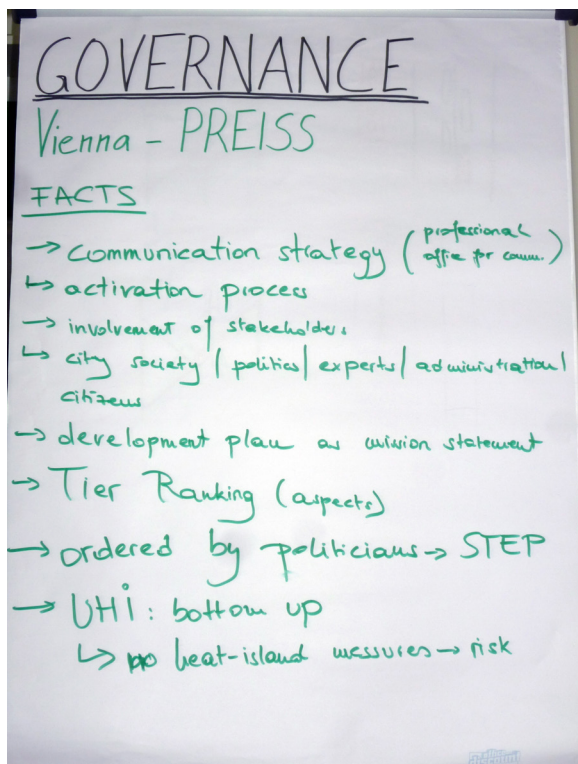 GOVERNANCE
Vienna - PREISS
FACTS
→ communication strategy (professional office for comm.)
↳ activation process
→ involvement of stakeholders
↳ city society / politics / experts / administration /
citizens
→ development plan as mission statement
→ Tier Ranking (aspects)
→ ordered by politicians → STEP
→ UHI: bottom up
↳ no heat-island messures → risk